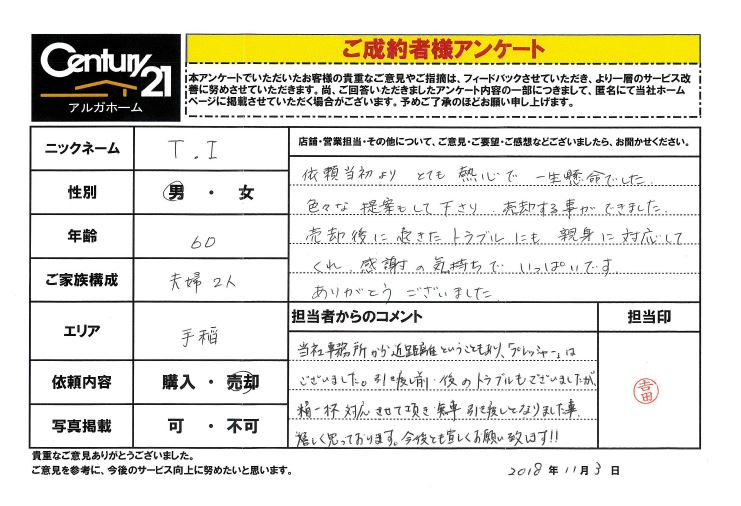 Century 21
アルガホーム
ご成約者様アンケート
本アンケートでいただいたお客様の貴重なご意見やご指摘は、フィードバックさせていただき、より一層のサービス改
善に努めさせていただきます。尚、ご回答いただきましたアンケート内容の一部につきまして、匿名にて当社ホーム
ページに掲載させていただく場合がございます。予めご了承のほどお願い申し上げます。
ニックネーム T.I
性別 男・女
年齢 60
ご家族構成 夫婦2人
エリア 手稲
依頼内容 購入・売却
写真掲載 可・不可
店舗・営業担当・その他について、ご意見・ご要望・ご感想などございましたら、お聞かせください。
依頼当初より とても 熱心で 一生懸命でした.
色々な 提案もして下さり. 売却する事ができました.
売却後に起きたトラブルにも 親身に対応して
くれ. 感謝の気持ちで いっぱいです.
ありがとう ございました.
担当者からのコメント
当社事務所から近距離ということもあり、「プレッシャー」は
ございました。引き渡し前・後のトラブルもございましたが、
精一杯対応させて頂き無事引き渡しとなりました事、
嬉しく思っております。今後とも宜しくお願い致します!!
担当印
吉田
貴重なご意見ありがとうございました。
ご意見を参考に、今後のサービス向上に努めたいと思います。
2018年11月3日